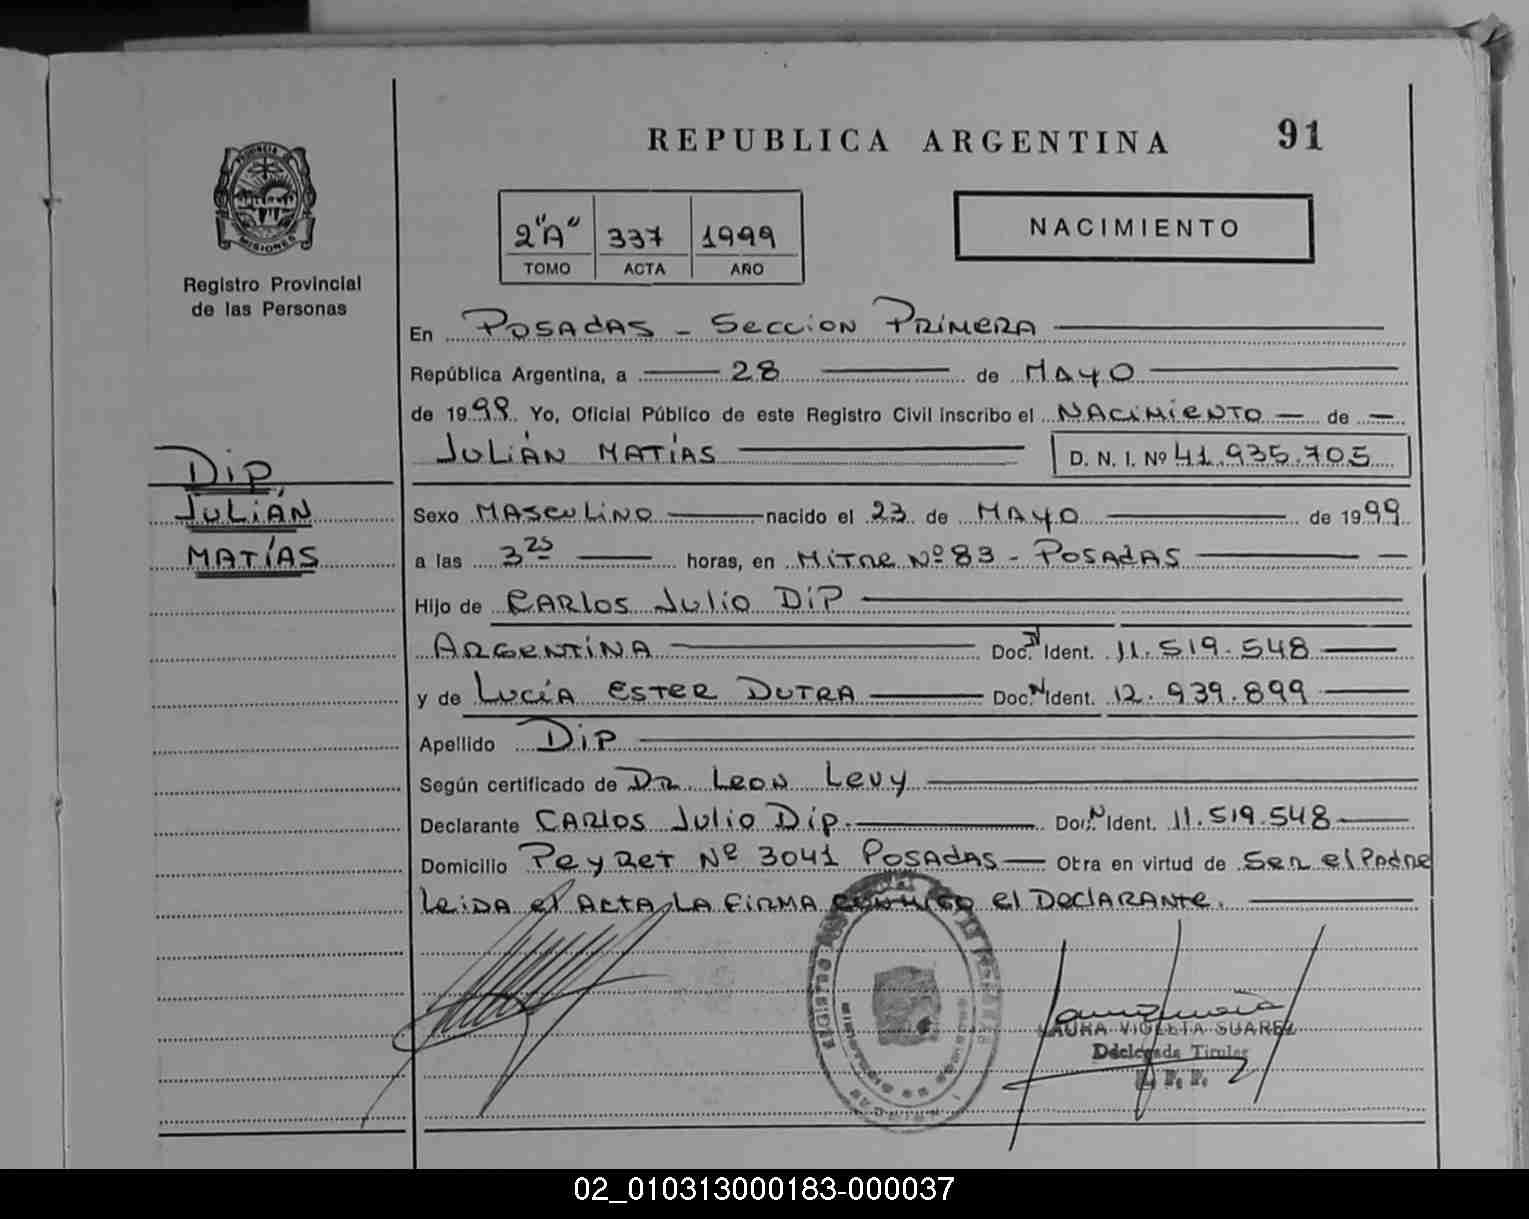 REPUBLICA ARGENTINA 91
PROVINCIA DE
MISIONES
Registro Provincial
de las Personas
2"A" 337 1999
TOMO ACTA AÑO
NACIMIENTO
En Posadas - Seccion Primera
República Argentina, a 28 de Mayo
de 1999 Yo, Oficial Público de este Registro Civil inscribo el Nacimiento de
Julián Matías D. N. I. Nº 41.935.705
Dip
Julián
Matías
Sexo Masculino nacido el 23 de Mayo de 1999
a las 3 25 horas, en Mitre Nº 83 - Posadas
Hijo de Carlos Julio Dip
Argentina Doc. Ident. 11.519.548
y de Lucía Ester Dutra Doc. Ident. 12.939.899
Apellido Dip
Según certificado de Dr. Leon Levy
Declarante Carlos Julio Dip. Doc. Ident. 11.519.548
Domicilio Peyret Nº 3041 Posadas Obra en virtud de Ser el Padre
Leida el Acta La Firma conmigo el Declarante.
LAURA VIOLETA SUAREZ
Ddelegada Titular
02_010313000183-000037